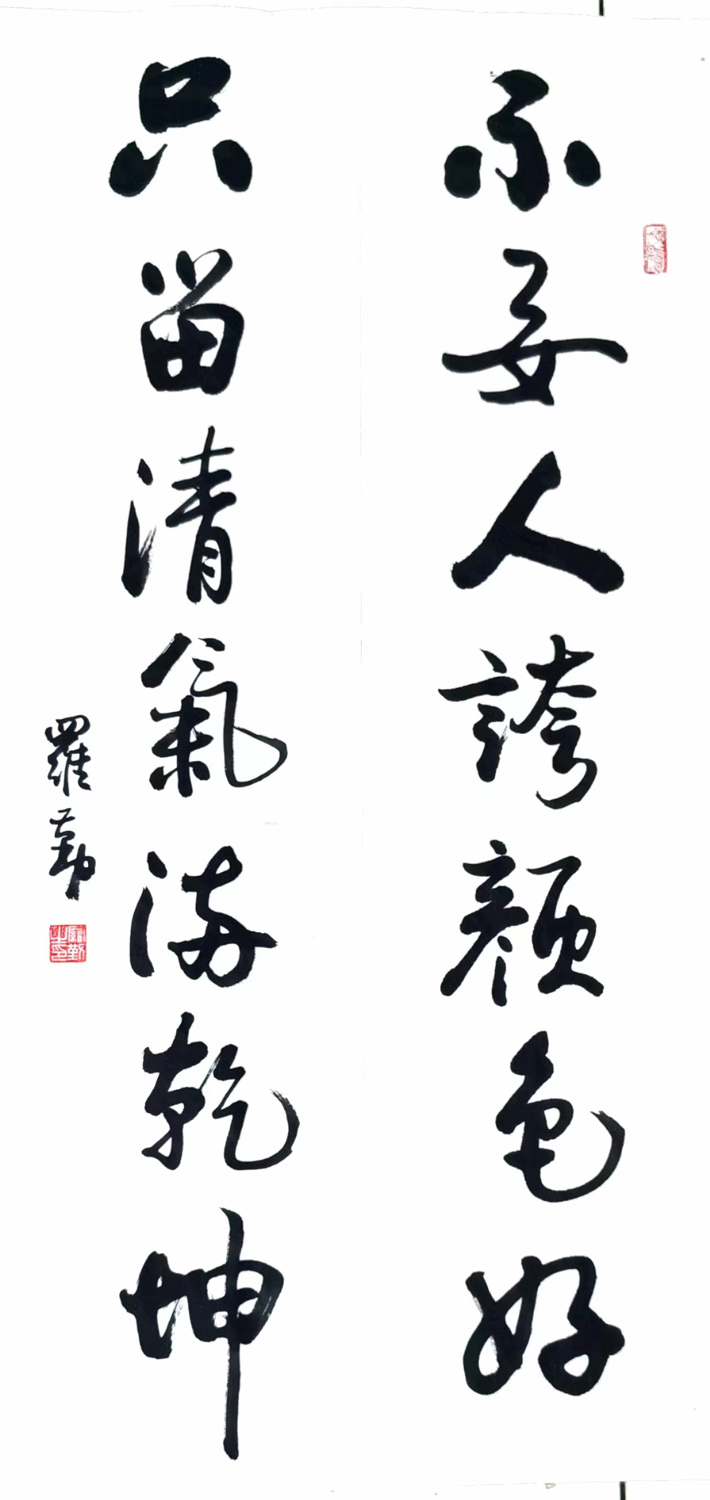 不要人誇顏色好
只留清氣滿乾坤
羅勤
羅勤之印